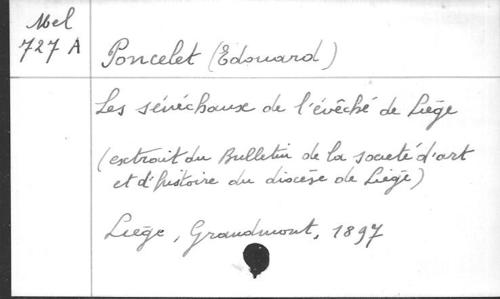 Mel
727 A
Poncelet (Edouard)
Les sénéchaux de l'évêché de Liège
(extrait du Bulletin de la société d'art
et d'histoire du diocèse de Liège)
Liège, Grandmont, 1897